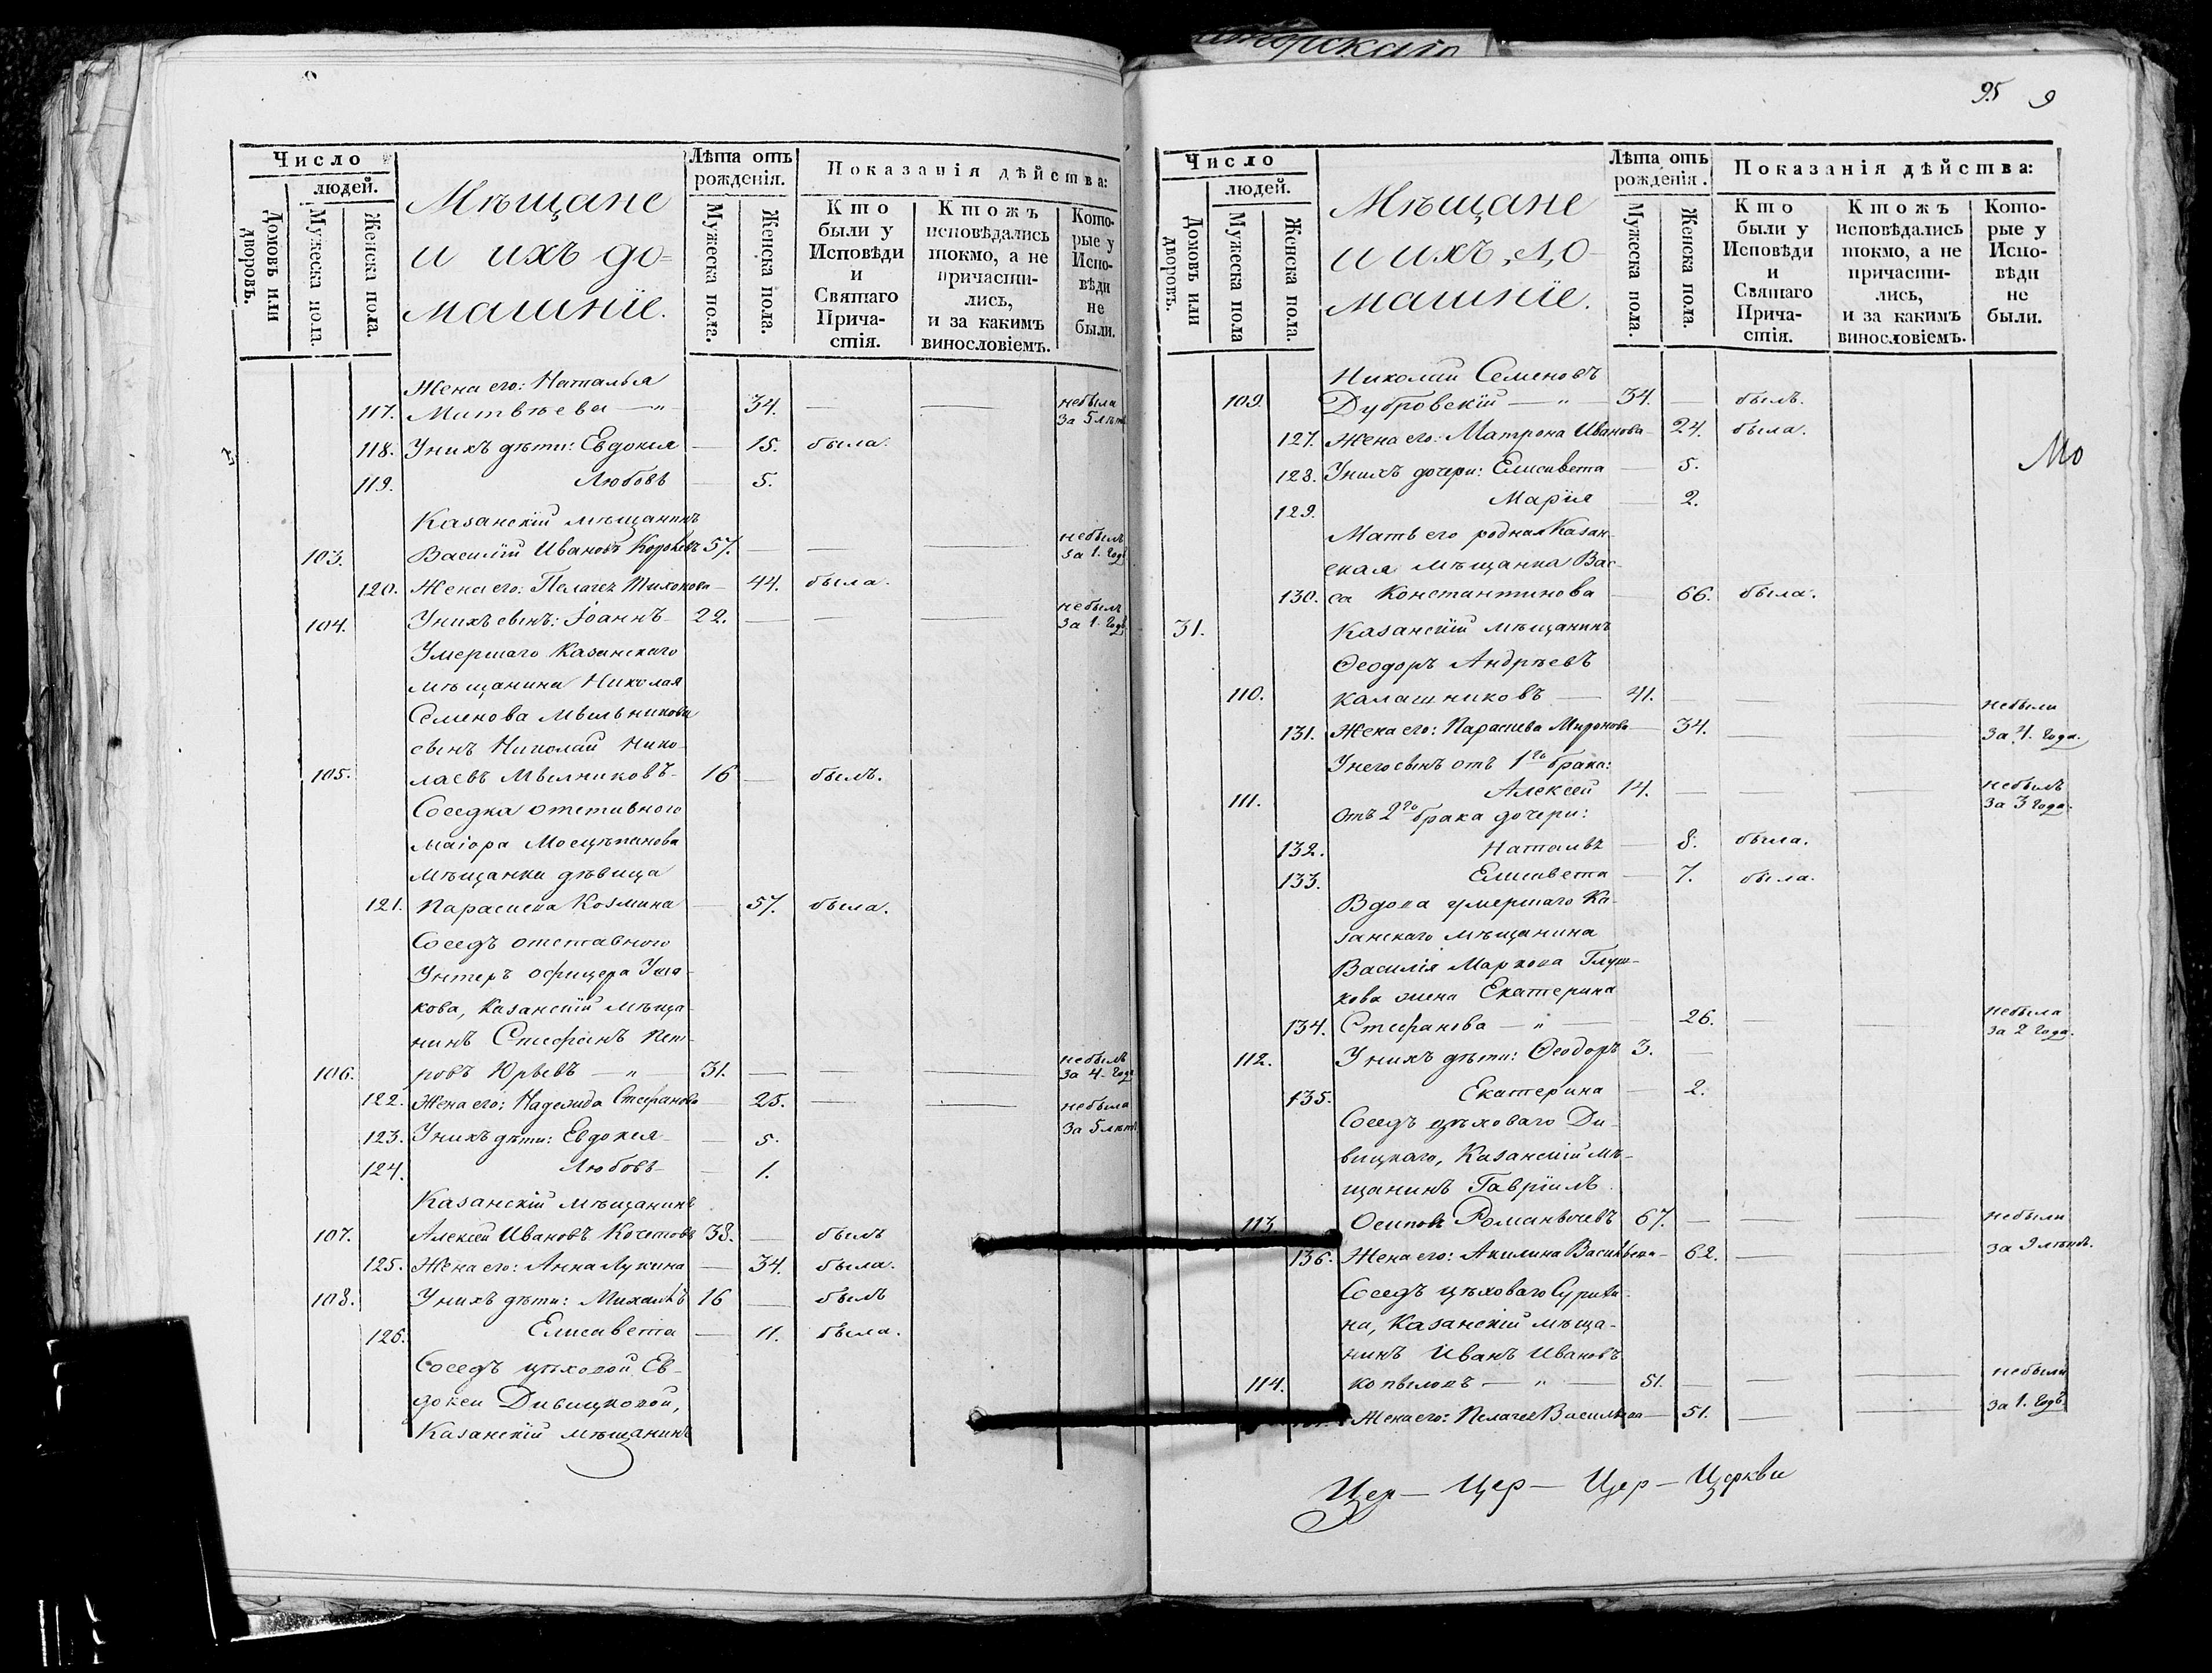 аторскаго
Число
людей.
Домовъ или дворовъ.
Мужеска пола.
Женска пола.
Мѣщане
и ихъ до=
машніе.
Лѣта отъ
рожденія.
Мужеска пола.
Женска пола.
Показанія дѣйства:
Кто были у Исповѣди и Святаго Прича-стія.
Ктожъ исповѣдались токмо, а не причасти-лись, и за какимъ винословіемъ.
Кото-рые у Испо-вѣди не были.
Жена его: Наталья
117. Матвѣева — „ 34. — — небыла за 5 лѣтъ
118. У нихъ дѣти: Евдокія — 15. была.
119. Любовь — 5.
Казанскій мѣщанинъ
103. Василій Ивановъ 57. — — — небылъ за 1. годъ
120. Жена его: Пелагея Тихонова — 44. была.
104. У нихъ сынъ: Іоаннъ 22. — — — небылъ за 1. годъ
Умершаго Казанскаго
мѣщанина Николая
Семенова Мыльникова
сынъ Николай Нико-
105. лаевъ Мылниковъ — 16 — былъ.
Соседка отставного
маіора
мѣщанка дѣвица
121. Параскева Козмина — 57. была.
Соседъ отставного
Унтеръ офицера Уша-
кова, Казанскій мѣща-
нинъ Стефанъ Пет-
106. ровъ Юрьевъ — „ — 31. — — — небылъ за 4. года
122. Жена его: Надежда Стефанова 25. — — небыла за 5 лѣтъ
123. У нихъ дѣти: Евдокія — 5.
124. Любовь — 1.
Казанскій мѣщанинъ
107. Алексей Ивановъ Кочетовъ 38. — былъ
125. Жена его: Анна Лукина — 34. была.
108. У нихъ дѣти: Михаилъ 16 — былъ
126. Елисавета — 11. была.
Соседъ цѣховой Ев-
докеи Дивицковой,
Казанскій мѣщанинъ
95 9
Число
людей.
Домовъ или дворовъ.
Мужеска пола
Женска пола.
Мѣщане
и ихъ до-
машніе.
Лѣта отъ
рожденія.
Мужеска пола.
Женска пола.
Показанія дѣйства:
Кто были у Исповѣди и Святаго Прича-стія.
Ктожъ исповѣдались токмо, а не причасти-лись, и за какимъ винословіемъ.
Кото-рые у Испо-вѣди не были.
Николай Семеновъ
109. Дубровскій — „ — 34. — былъ.
127. Жена его: Матрона Иванова — 24. была.
Мо
128. У нихъ дочери: Елисавета — 5.
129. Марія — 2.
Мать его родная Казан-
ская мѣщанка Вас-
130. са Константинова — 66. была.
31. Казанскій мѣщанинъ
Ѳеодоръ Андрѣевъ
110. Калашниковъ — 41. — — — небыли
131. Жена его: Параскева Миронова — 34. — — за 4. года.
У него сынъ отъ 1го брака:
111. Алексей 14. — — — небылъ за 3 года.
Отъ 2го брака дочери:
132. Наталья — 8. была.
133. Елисавета — 7. была.
Вдова умершаго Ка-
занскаго мѣщанина
Василія Маркова Глуш-
кова жена Екатерина
134. Стефанова — „ — 26. — — небыла за 2 года.
112. У нихъ дѣти: Ѳеодоръ 3. —
135. Екатерина — 2.
Соседъ цѣховаго Ди-
вицкаго, Казанскій мѣ-
щанинъ Гавріилъ
113 Осиповъ Романычевъ 67. — — — небыли
136. Жена его: Акилина Васильева — 62. — — за 9 лѣтъ.
Соседъ цѣховаго
на, Казанскій мѣща-
нинъ Иванъ Ивановъ
114. Копыловъ — „ — 51. — — — небыли
Жена его: Пелагея Васильева — 51. — — за 1. годъ.
Цер — Цер — Цер — Церкви